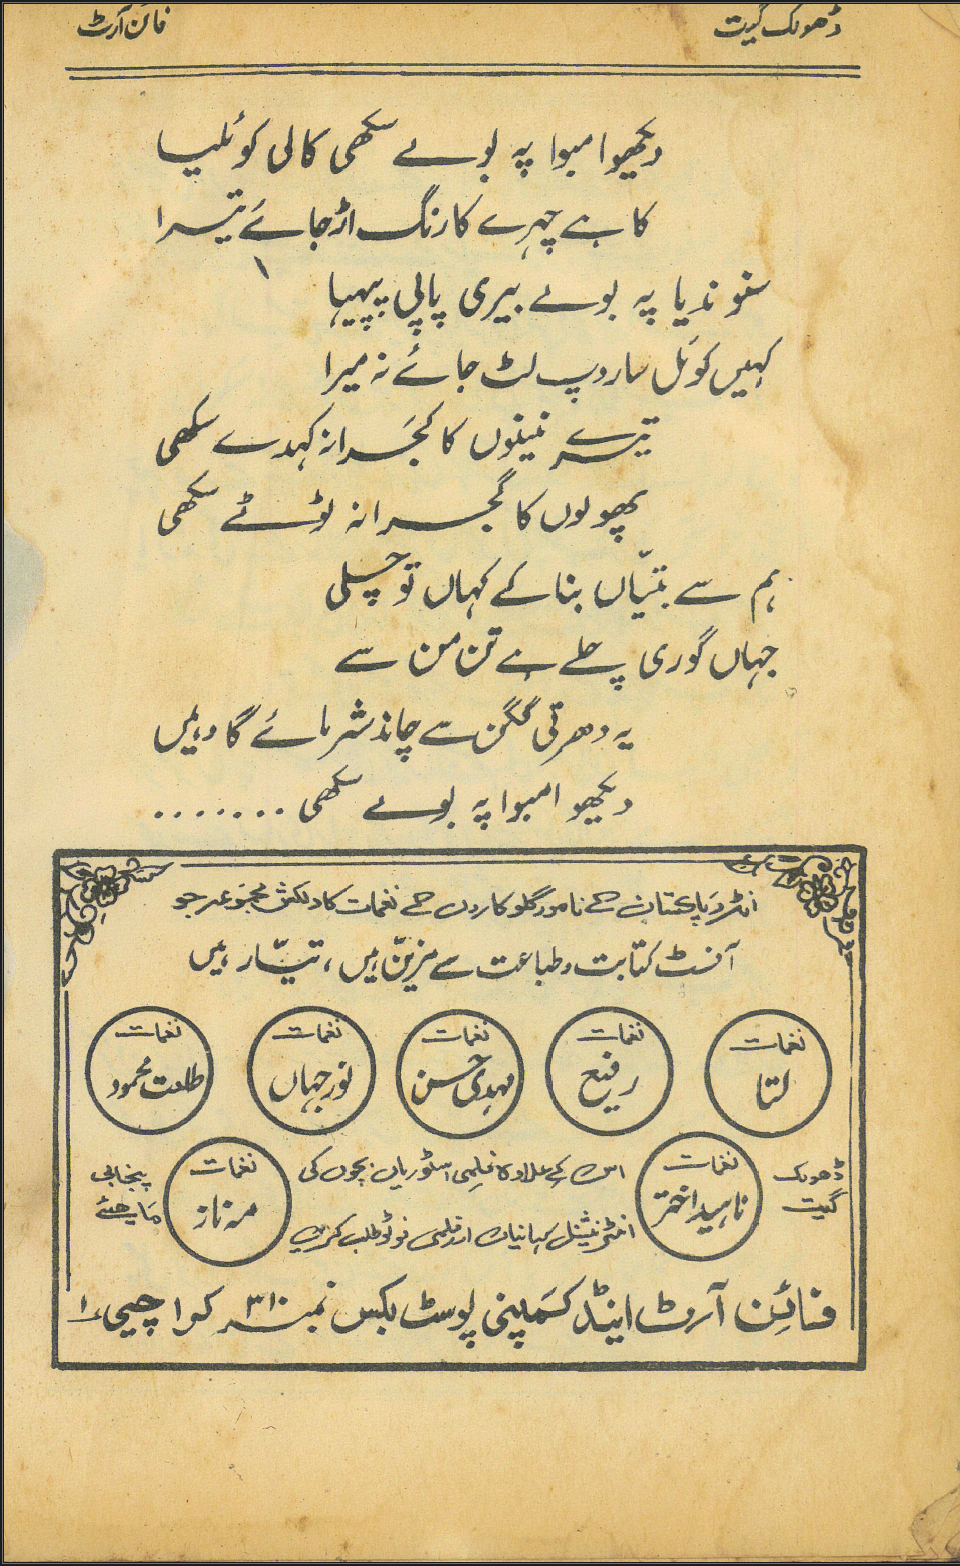 ڈھولک گیت
فائن آرٹ
دیکھو امبوا پہ بولے سکھی کالی کوئلیا
کاہے چہرے کا رنگ اڑ جائے تیرا
سنو ندیا پہ بولے بیری پاپی پپیہا
کہیں کوئل سا روپ لٹ جائے نہ میرا
تیرے نینوں کا کجرا نہ کہدے سکھی
پھولوں کا گجرا نہ ٹوٹے سکھی
ہم سے بتیّاں بنا کے کہاں تو چلی
جہاں گوری چلے ہے تن من سے
یہ دھرتی گگن سے چاند شرمائے گا وہیں
دیکھو امبوا پہ بولے سکھی .......
انڈو پاکستان کے نامور گلوکاروں کے نغمات کا دلکش مجموعہ جو
آفسٹ کتابت و طباعت سے مزیّن ہیں، تیّار ہیں
نغمات لتا
نغمات رفیع
نغمات مہدی حسن
نغمات نور جہاں
نغمات طلعت محمود
ڈھولک گیت
نغمات ناہید اختر
اس کے علاوہ فلمی اسٹوریاں بچوں کی
انٹرنیشنل کہانیاں اور فلمی فوٹو طلب کریں
نغمات مہ ناز
پنجابی ماہیئے
فائن آرٹ اینڈ کمپنی پوسٹ بکس نمبر ۳۱۰ کراچی ۱